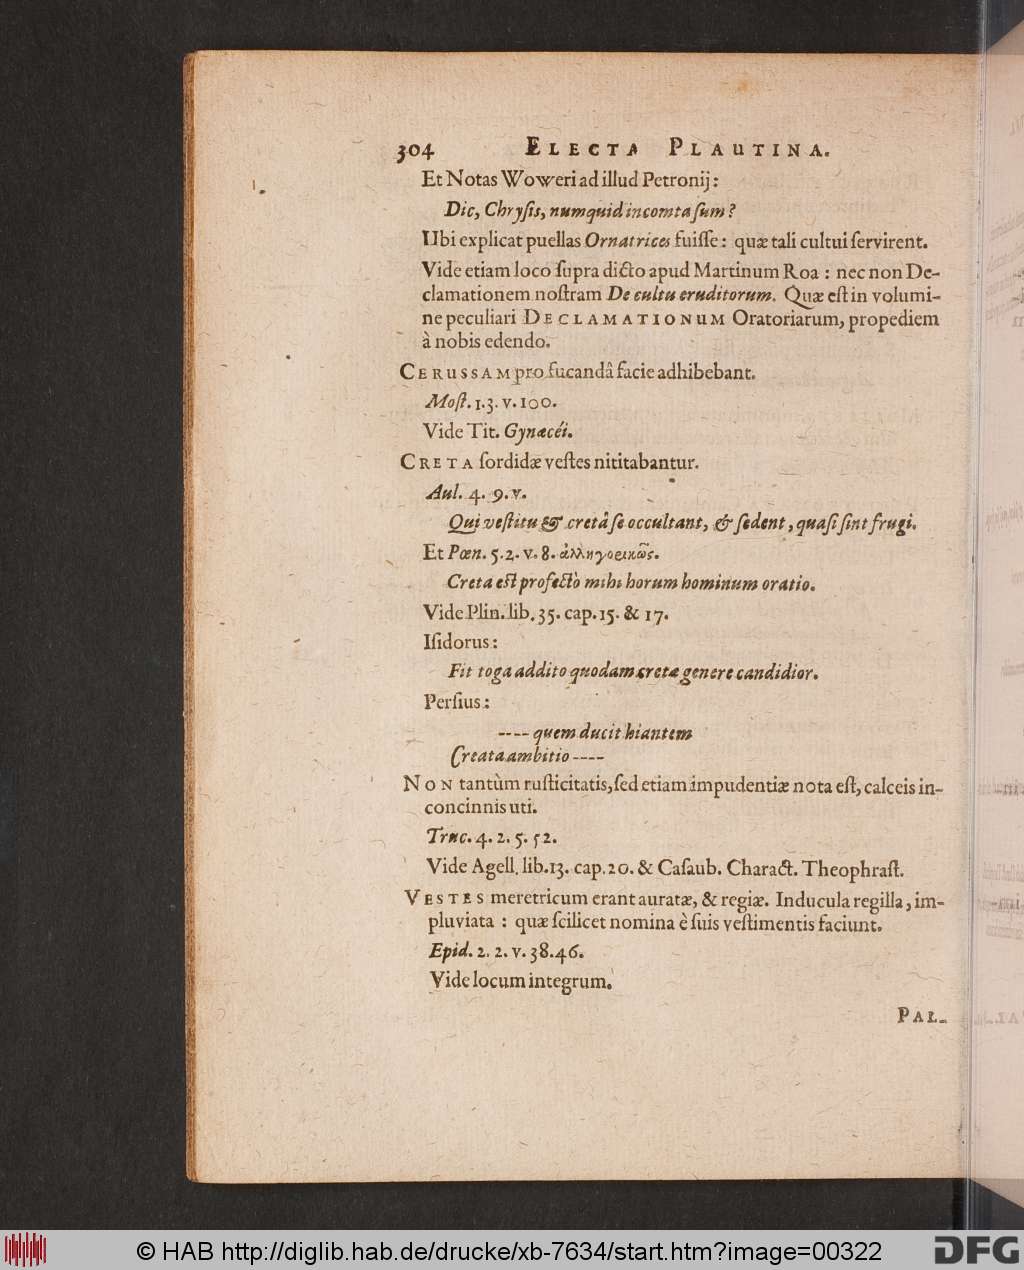 304 ELECTA PLAUTINA.
Et Notas Woweri ad illud Petronij:
Dic, Chryſis, numquid incomta ſum?
Ubi explicat puellas Ornatrices fuiſſe: quæ tali cultui ſervirent.
Vide etiam loco ſupra dicto apud Martinum Roa: nec non De-
clamationem noſtram De cultu eruditorum. Quæ eſt in volumi-
ne peculiari DECLAMATIONUM Oratoriarum, propediem
à nobis edendo.
CERUSSAM pro fucandâ facie adhibebant.
Moſt. 1.3. v. 100.
Vide Tit. Gynæcéi.
CRETA ſordidæ veſtes nititabantur.
Aul. 4. 9. v.
Qui veſtitu & cretâ ſe occultant, & ſedent, quaſi ſint frugi.
Et Pœn. 5. 2. v. 8. ἀλληγορικῶς.
Creta eſt profectò mihi horum hominum oratio.
Vide Plin. lib. 35. cap. 15. & 17.
Iſidorus:
Fit toga addito quodam cretæ genere candidior.
Perſius:
---- quem ducit hiantem
Creata ambitio ----
NON tantùm ruſticitatis, ſed etiam impudentiæ nota eſt, calceis in-
concinnis uti.
Truc. 4. 2. 5. 52.
Vide Agell. lib. 13. cap. 20. & Caſaub. Charact. Theophraſt.
VESTES meretricum erant auratæ, & regiæ. Inducula regilla, im-
pluviata: quæ ſcilicet nomina è ſuis veſtimentis faciunt.
Epid. 2. 2. v. 38. 46.
Vide locum integrum.
PAL-
© HAB http://diglib.hab.de/drucke/xb-7634/start.htm?image=00322
DFG